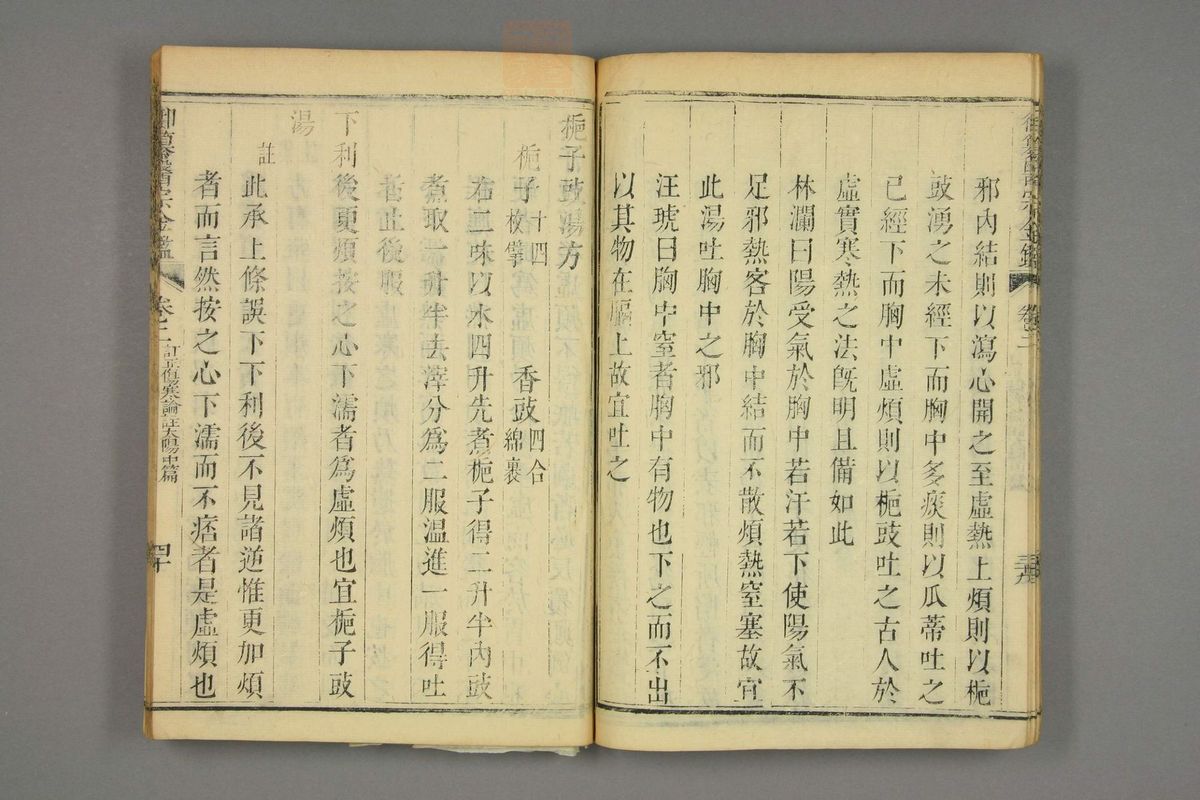 邪內結則以瀉心開之至虛熱上煩則以梔
豉湧之未經下而胸中多痰則以瓜蒂吐之
已經下而胸中虛煩則以梔豉吐之古人於
虛實寒熱之法旣明且備如此
林瀾曰陽受氣於胸中若汗若下使陽氣不
足邪熱客於胸中結而不散煩熱窒塞故宜
此湯吐胸中之邪
汪琥曰胸中窒者胸中有物也下之而不出
以其物在膈上故宜吐之
梔子豉湯方
梔子十四枚擘 香豉四合綿裹
右二味以水四升先煮梔子得二升半內豉
煮取一升半去滓分爲二服温進一服得吐
者止後服
下利後更煩按之心下濡者爲虛煩也宜梔子豉
湯
註此承上條誤下下利後不見諸逆惟更加煩
者而言然按之心下濡而不痞者是虛煩也
御纂醫宗金鑑 卷二 訂正傷寒論註太陽中篇 四十